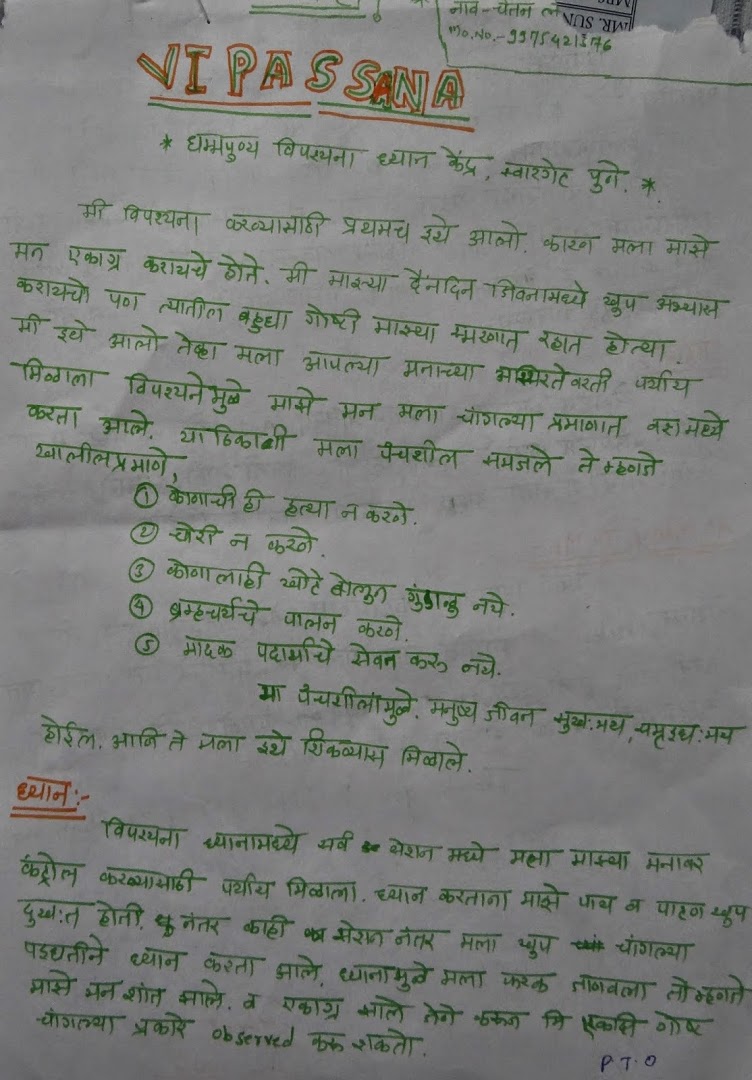 नाव - चेतन
MR. SUN
Mo.No.-9975421376
VIPASSANA
* धम्मपुण्य विपश्यना ध्यान केंद्र, स्वारगेट पुणे. *
मी विपश्यना करण्यासाठी प्रथमच इथे आलो. कारण मला माझे
मन एकाग्र करायचे होते. मी माझ्या दैनंदिन जिवनामध्ये खुप अभ्यास
करायचो पण त्यातील बहुधा गोष्टी माझ्या स्मरणात रहात होत्या.
मी इथे आलो तेव्हा मला आपल्या मनाच्या अस्थिरतेवरती पर्याय
मिळाला विपश्यनेमुळे माझे मन मला चांगल्या प्रमाणात वश मध्ये
करता आले. या ठिकाणी मला पंचशील समजले ते म्हणजे
खालीलप्रमाणे,
① कोणाचीही हत्या न करणे.
② चोरी न करणे.
③ कोणालाही खोटे बोलुन गुंडाळु नये.
④ ब्रम्हचर्यचे पालन करणे.
⑤ मादक पदार्थाचे सेवन करू नये.
या पंचशीलांमुळे. मनुष्य जीवन सुख:मय, समृद्ध:मय
होईल. आणि ते मला इथे शिकण्यास मिळाले.
ध्यान:-
विपश्यना ध्यानामध्ये सर्व सेशन मध्ये मला माझ्या मनावर
कंट्रोल करण्यासाठी पर्याय मिळाला. ध्यान करताना माझे पाय व पाठन खुप
दुख:त होती. नंतर काही सेशन नंतर मला खुप चांगल्या
पडद्यतीने ध्यान करता आले. ध्यानामुळे मला फरक जाणवला तो म्हणजे
माझे मन शांत झाले. व एकाग्र झाले तेणे करून मि एकादी गोष्ट
चांगल्या प्रकारे observed करू शकतो.
P.T.O